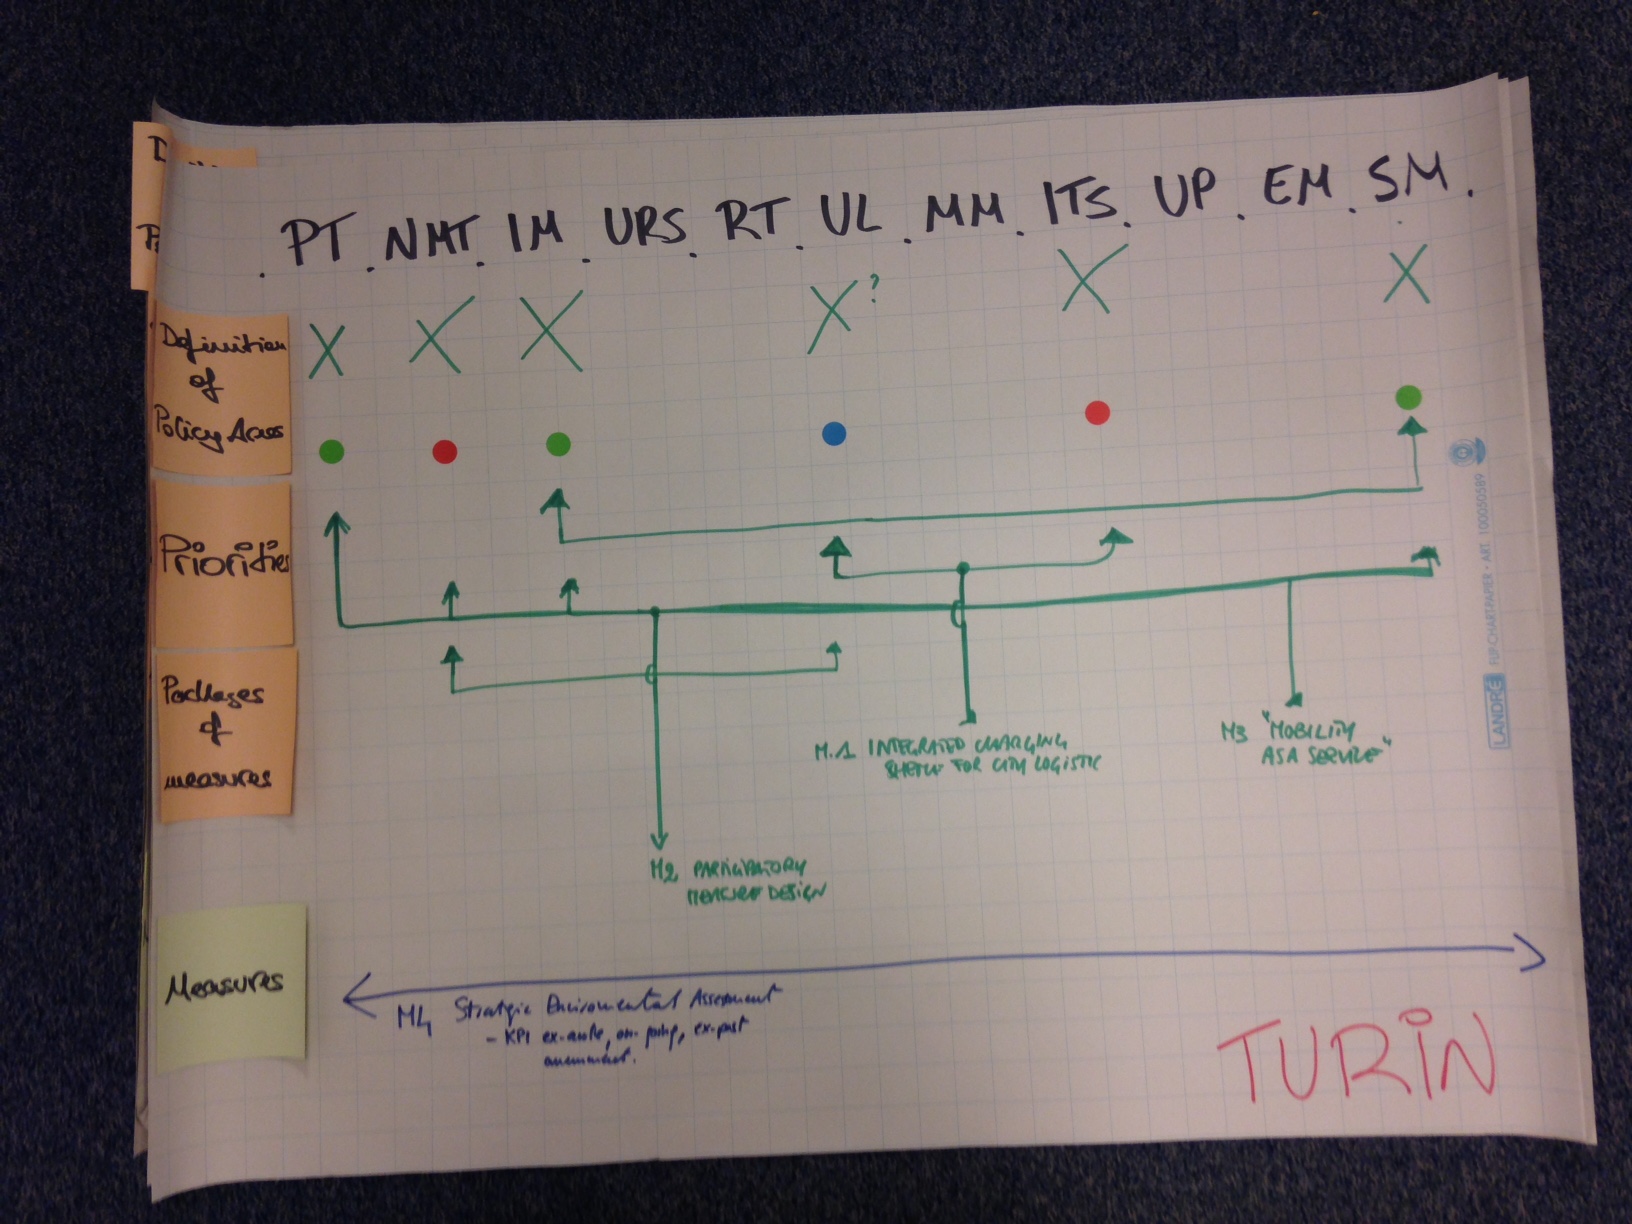 . PT . NMT . IM . URS . RT . UL . MM . ITS . UP . EM . SM .
X X X X ? X X
Definition
of
Policy Areas
Priorities
Packages
of
measures
M.1 INTEGRATED CHARGING
FOR CITY LOGISTIC
M3 "MOBILITY
AS A SERVICE"
M2 PARTICIPATORY
MEASURE DESIGN
Measures
M4 Strategic Enviromental Assessment
- KPI ex-ante, on-going, ex-post
TURIN
LANDRÉ FLIP-CHARTPAPIER • ART. 100050589